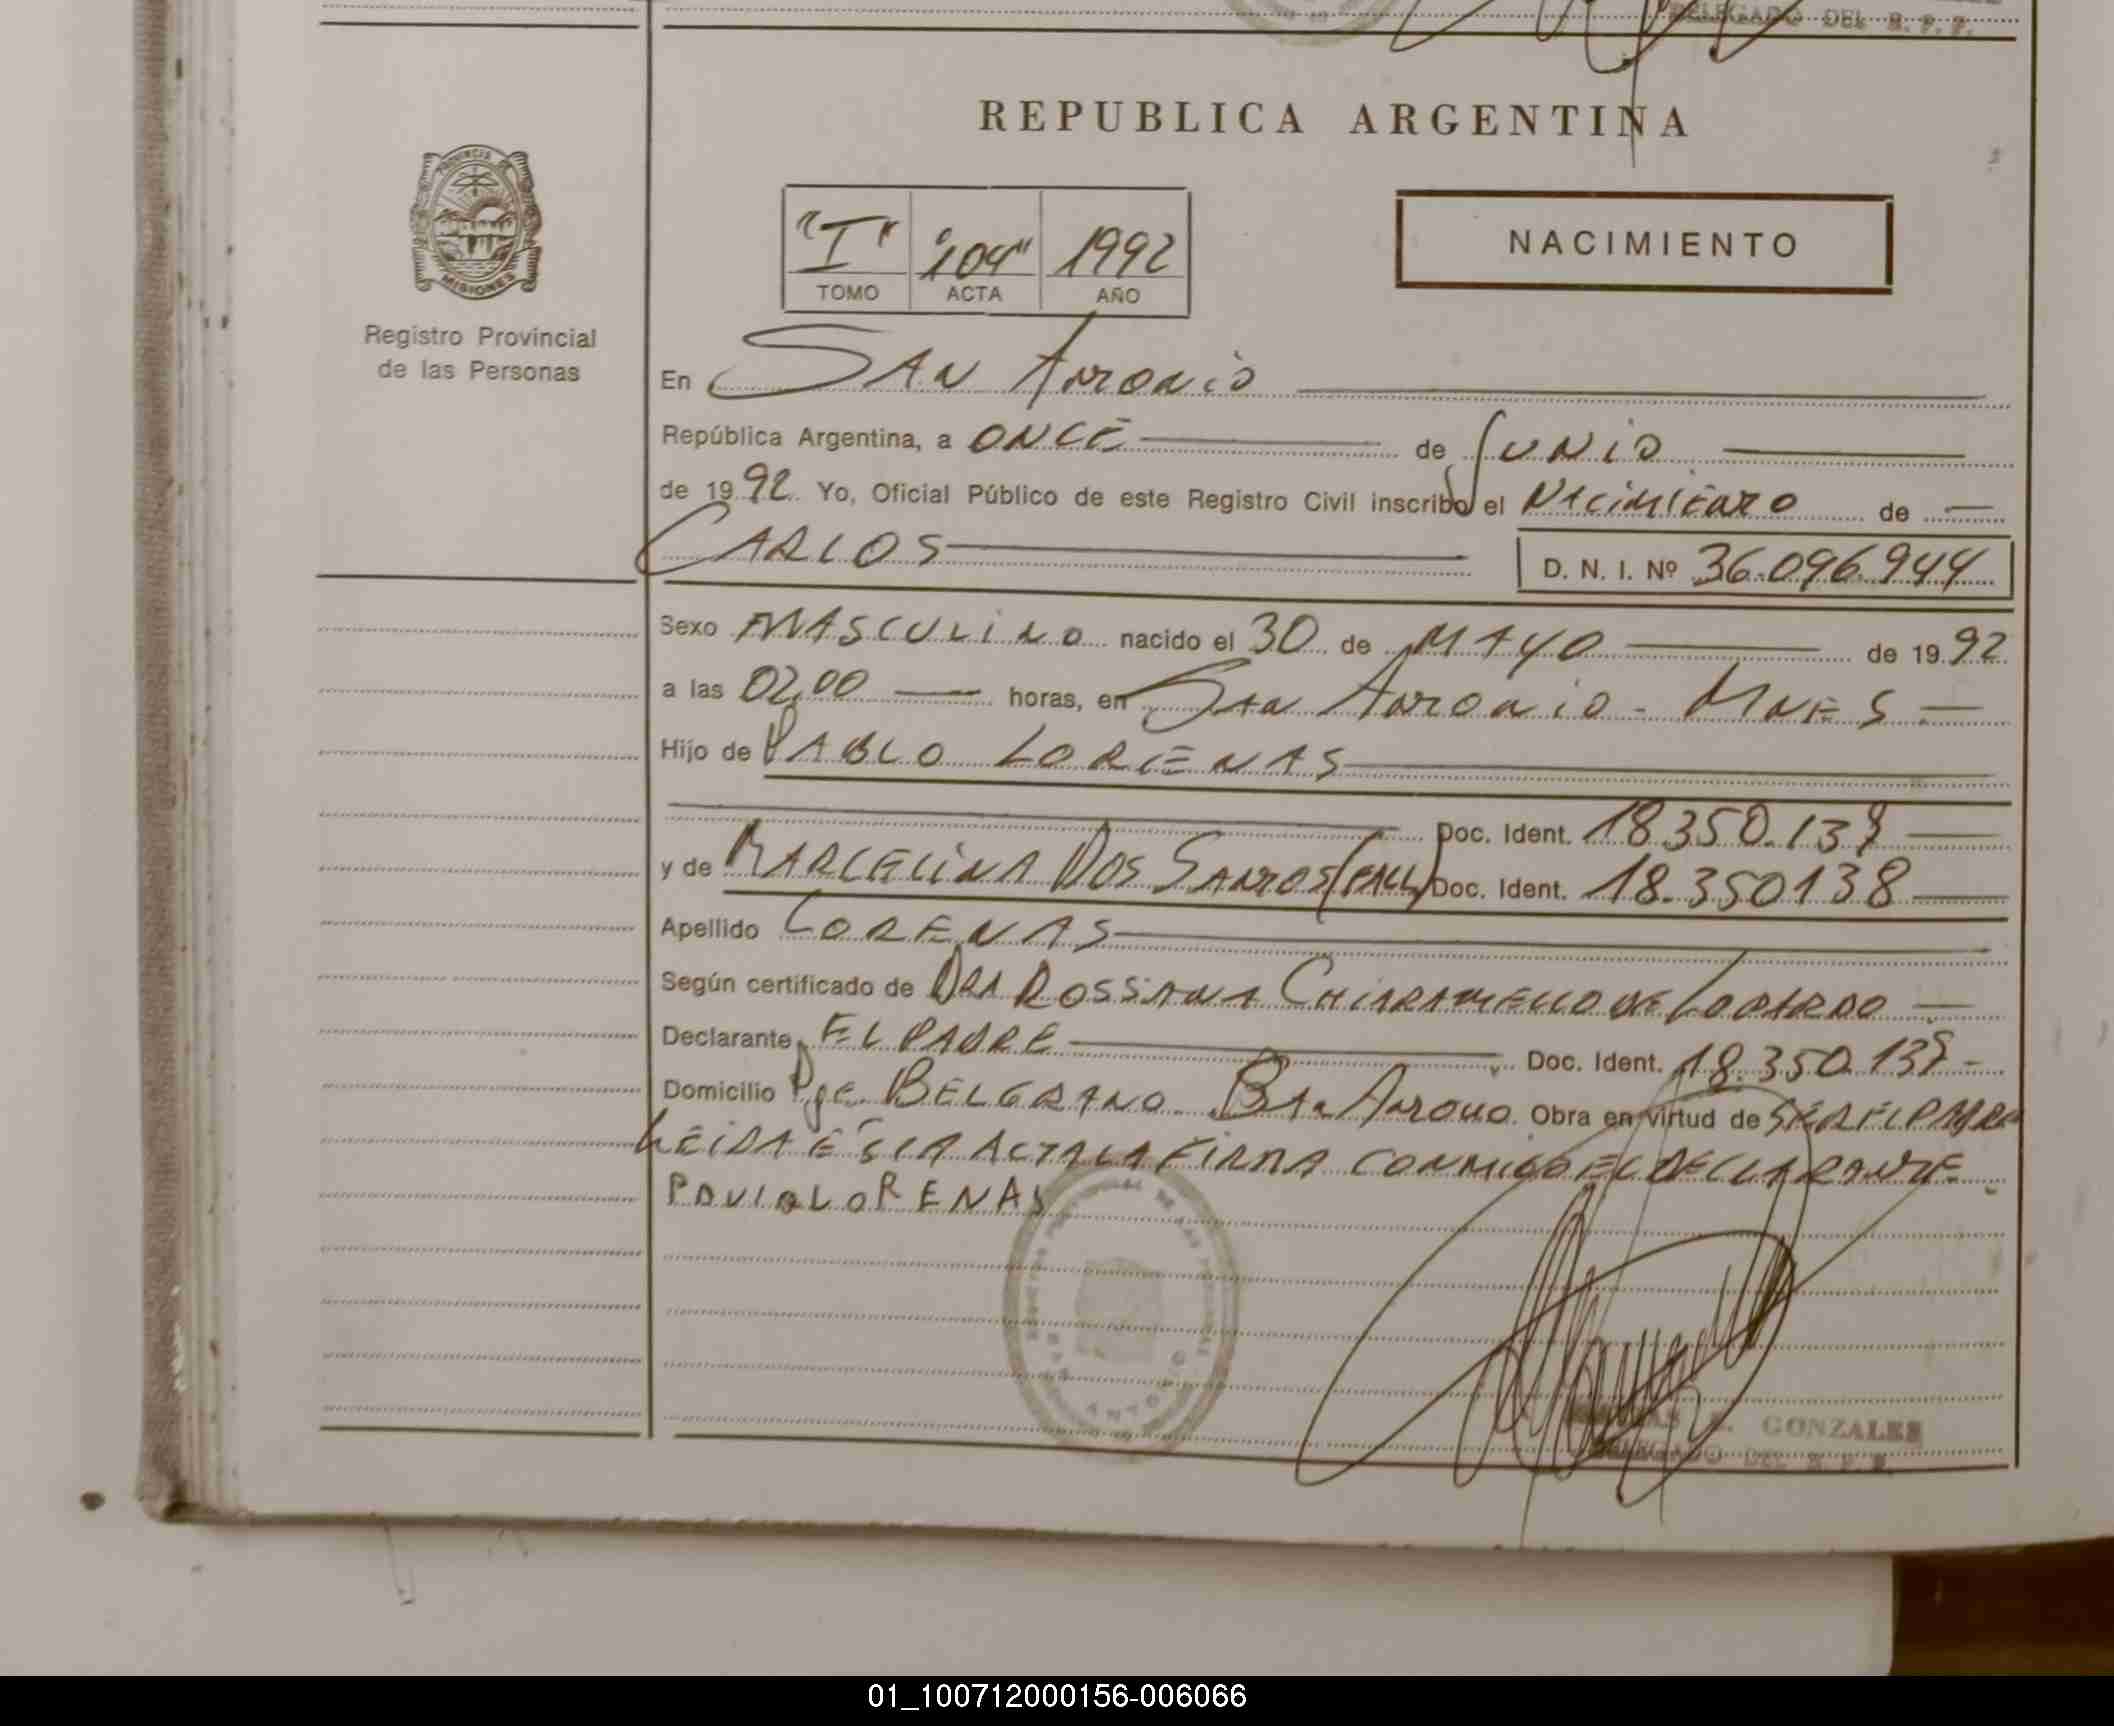 DELEGADO DEL R. P. P.
REPUBLICA ARGENTINA
PROVINCIA DE
MISIONES
Registro Provincial
de las Personas
"I" "104" 1992
TOMO ACTA AÑO
NACIMIENTO
En SAN ANTONIO
República Argentina, a ONCE de JUNIO
de 1992 Yo, Oficial Público de este Registro Civil inscribo el NACIMIENTO de
CARLOS D. N. I. Nº 36.096.944
Sexo MASCULINO nacido el 30 de MAYO de 1992
a las 02,00 horas, en SAN ANTONIO - MNES
Hijo de PABLO LORENAS
Doc. Ident. 18.350.139
y de MARCELINA DOS SANTOS (FALL) Doc. Ident. 18.350138
Apellido LORENAS
Según certificado de DRA ROSSANA CHIARAMELLO DE
Declarante EL PADRE Doc. Ident. 18.350.139
Domicilio Pje BELGRANO - Obra en virtud de SER EL PADRE
LEIDA ESTA ACTA LA FIRMA CONMIGO EL DECLARANTE
PAVLO LORENAS
SAN ANTONIO
GONZALES
DELEGADO DEL R. P. P.
01_100712000156-006066